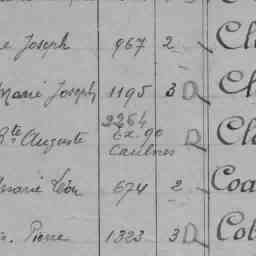 e Joseph 967 2 Cl
Marie Joseph 1195 3 D Cl
2264
Bte Auguste Ex. 90 D Cl
Caulnes
Marie Léon 674 2 Coa
Pierre 1323 3 D Col